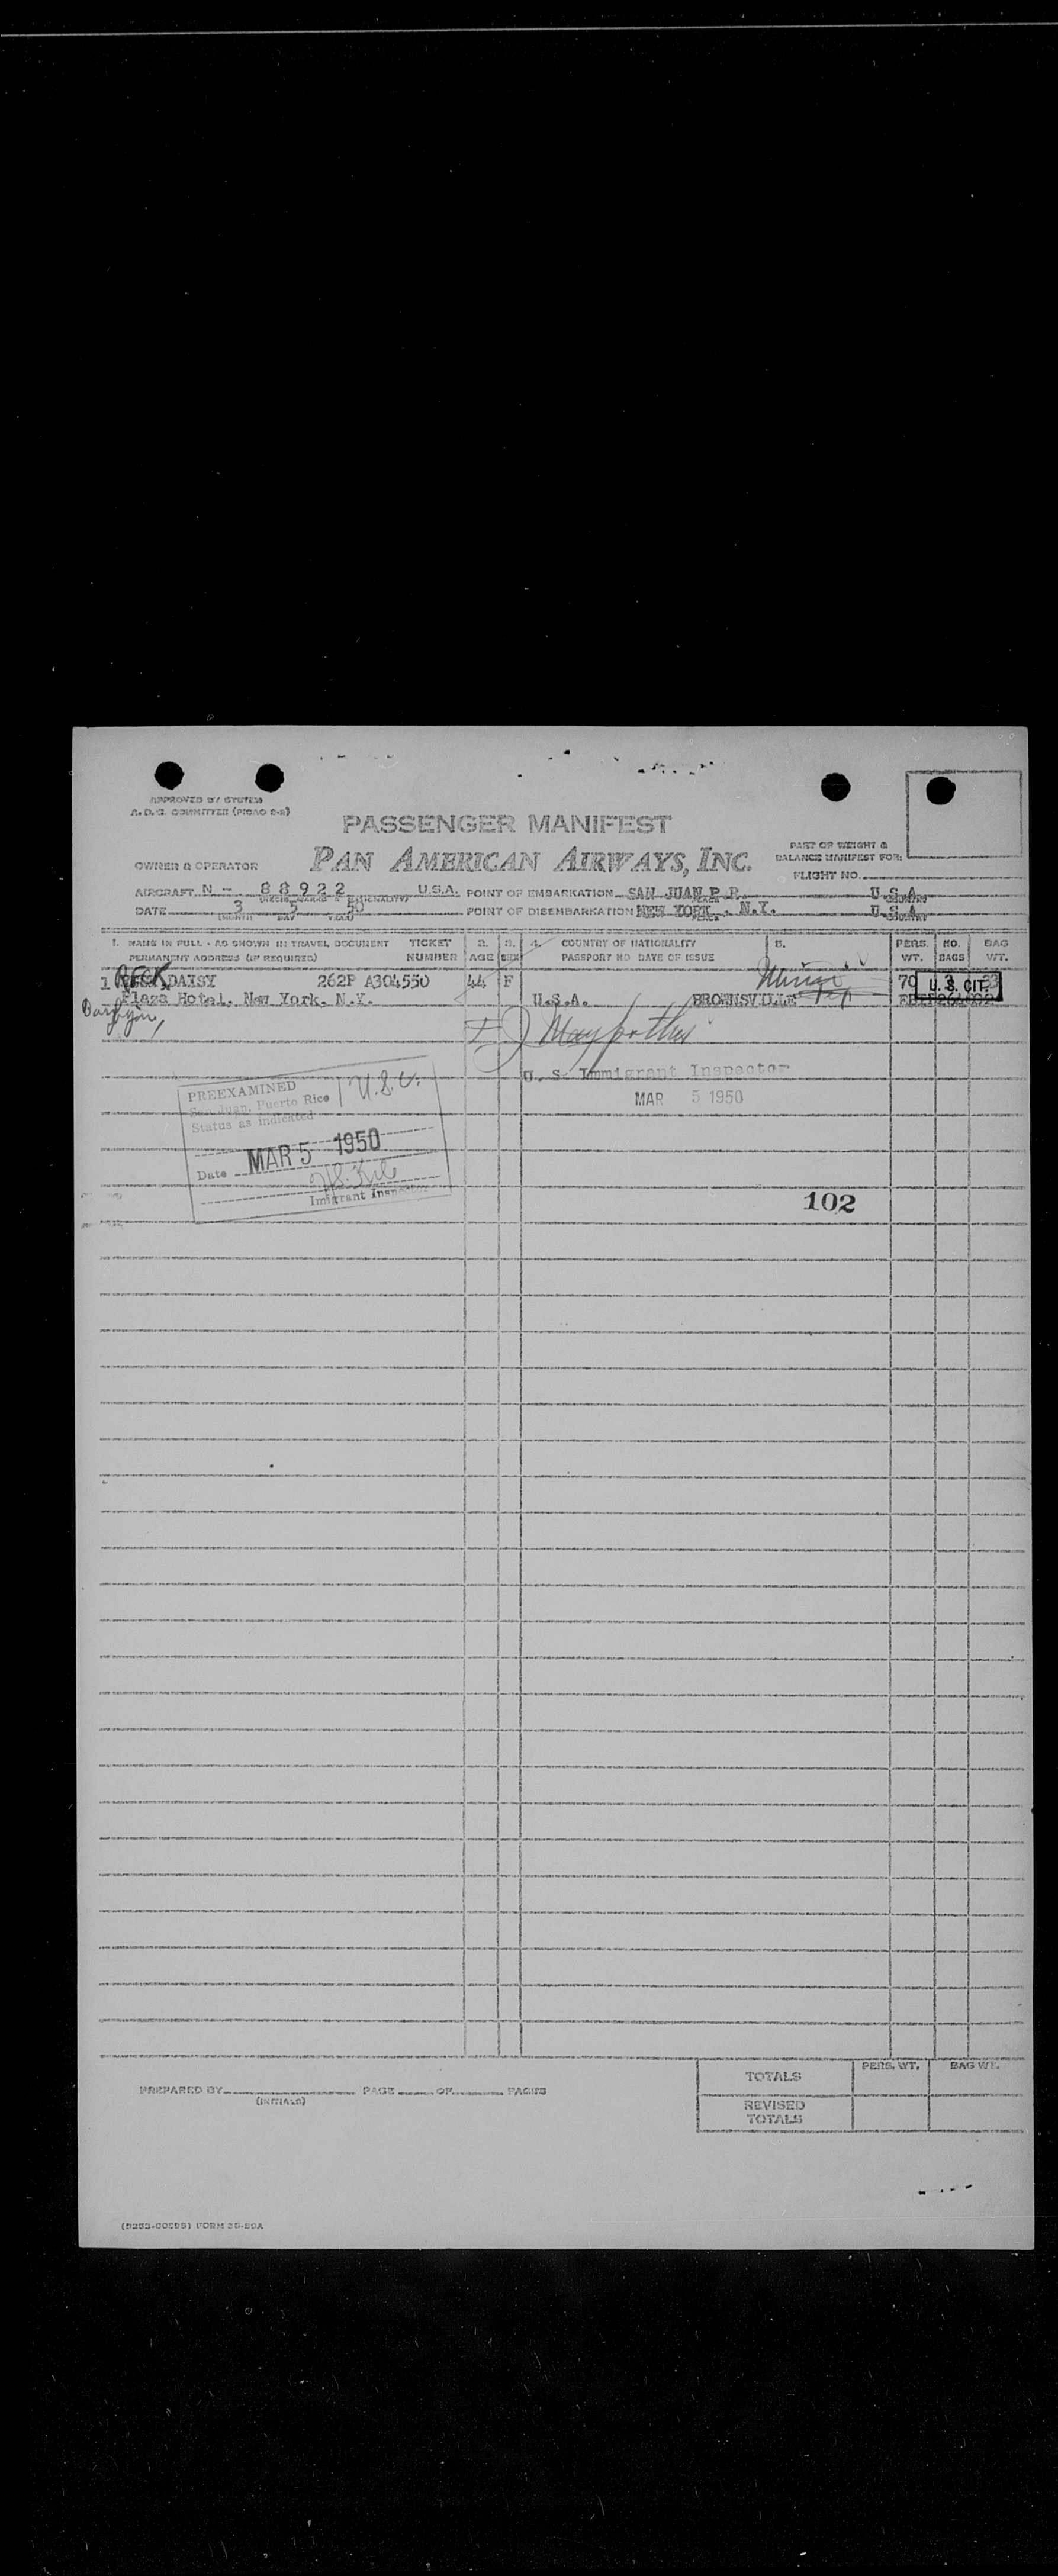 APPROVED BY SYSTEM
A. D. C. COMMITTEE (PICAO 2-2)
PASSENGER MANIFEST
PAN AMERICAN AIRWAYS, INC.
PART OF WEIGHT &
BALANCE MANIFEST FOR:
OWNER & OPERATOR
FLIGHT NO.
AIRCRAFT N - 88922 U.S.A. POINT OF EMBARKATION SAN JUAN P.R. U.S.A.
DATE 3 5 50 POINT OF DISEMBARKATION NEW YORK, N.Y. U.S.A.
(MONTH DAY YEAR)
1. NAME IN FULL - AS SHOWN IN TRAVEL DOCUMENT TICKET 2. 3. 4. COUNTRY OF NATIONALITY 5. PERS. NO. BAG
PERMANENT ADDRESS (IF REQUIRED) NUMBER AGE SEX PASSPORT NO DATE OF ISSUE WT. BAGS WT.
1 BECK, DAISY 262P A304550 44 F 70 3
U. S. CIT.
Plaza Hotel, New York, N.Y. U.S.A. BROWNSVILLE
U. S. Immigrant Inspector
MAR 5 1950
PREEXAMINED
U.S.C.
San Juan, Puerto Rico
Status as indicated
Date MAR 5 1950
Imigrant Inspector
102
TOTALS PERS. WT. BAG WT.
PREPARED BY PAGE OF PAGES
(INITIALS)
REVISED
TOTALS